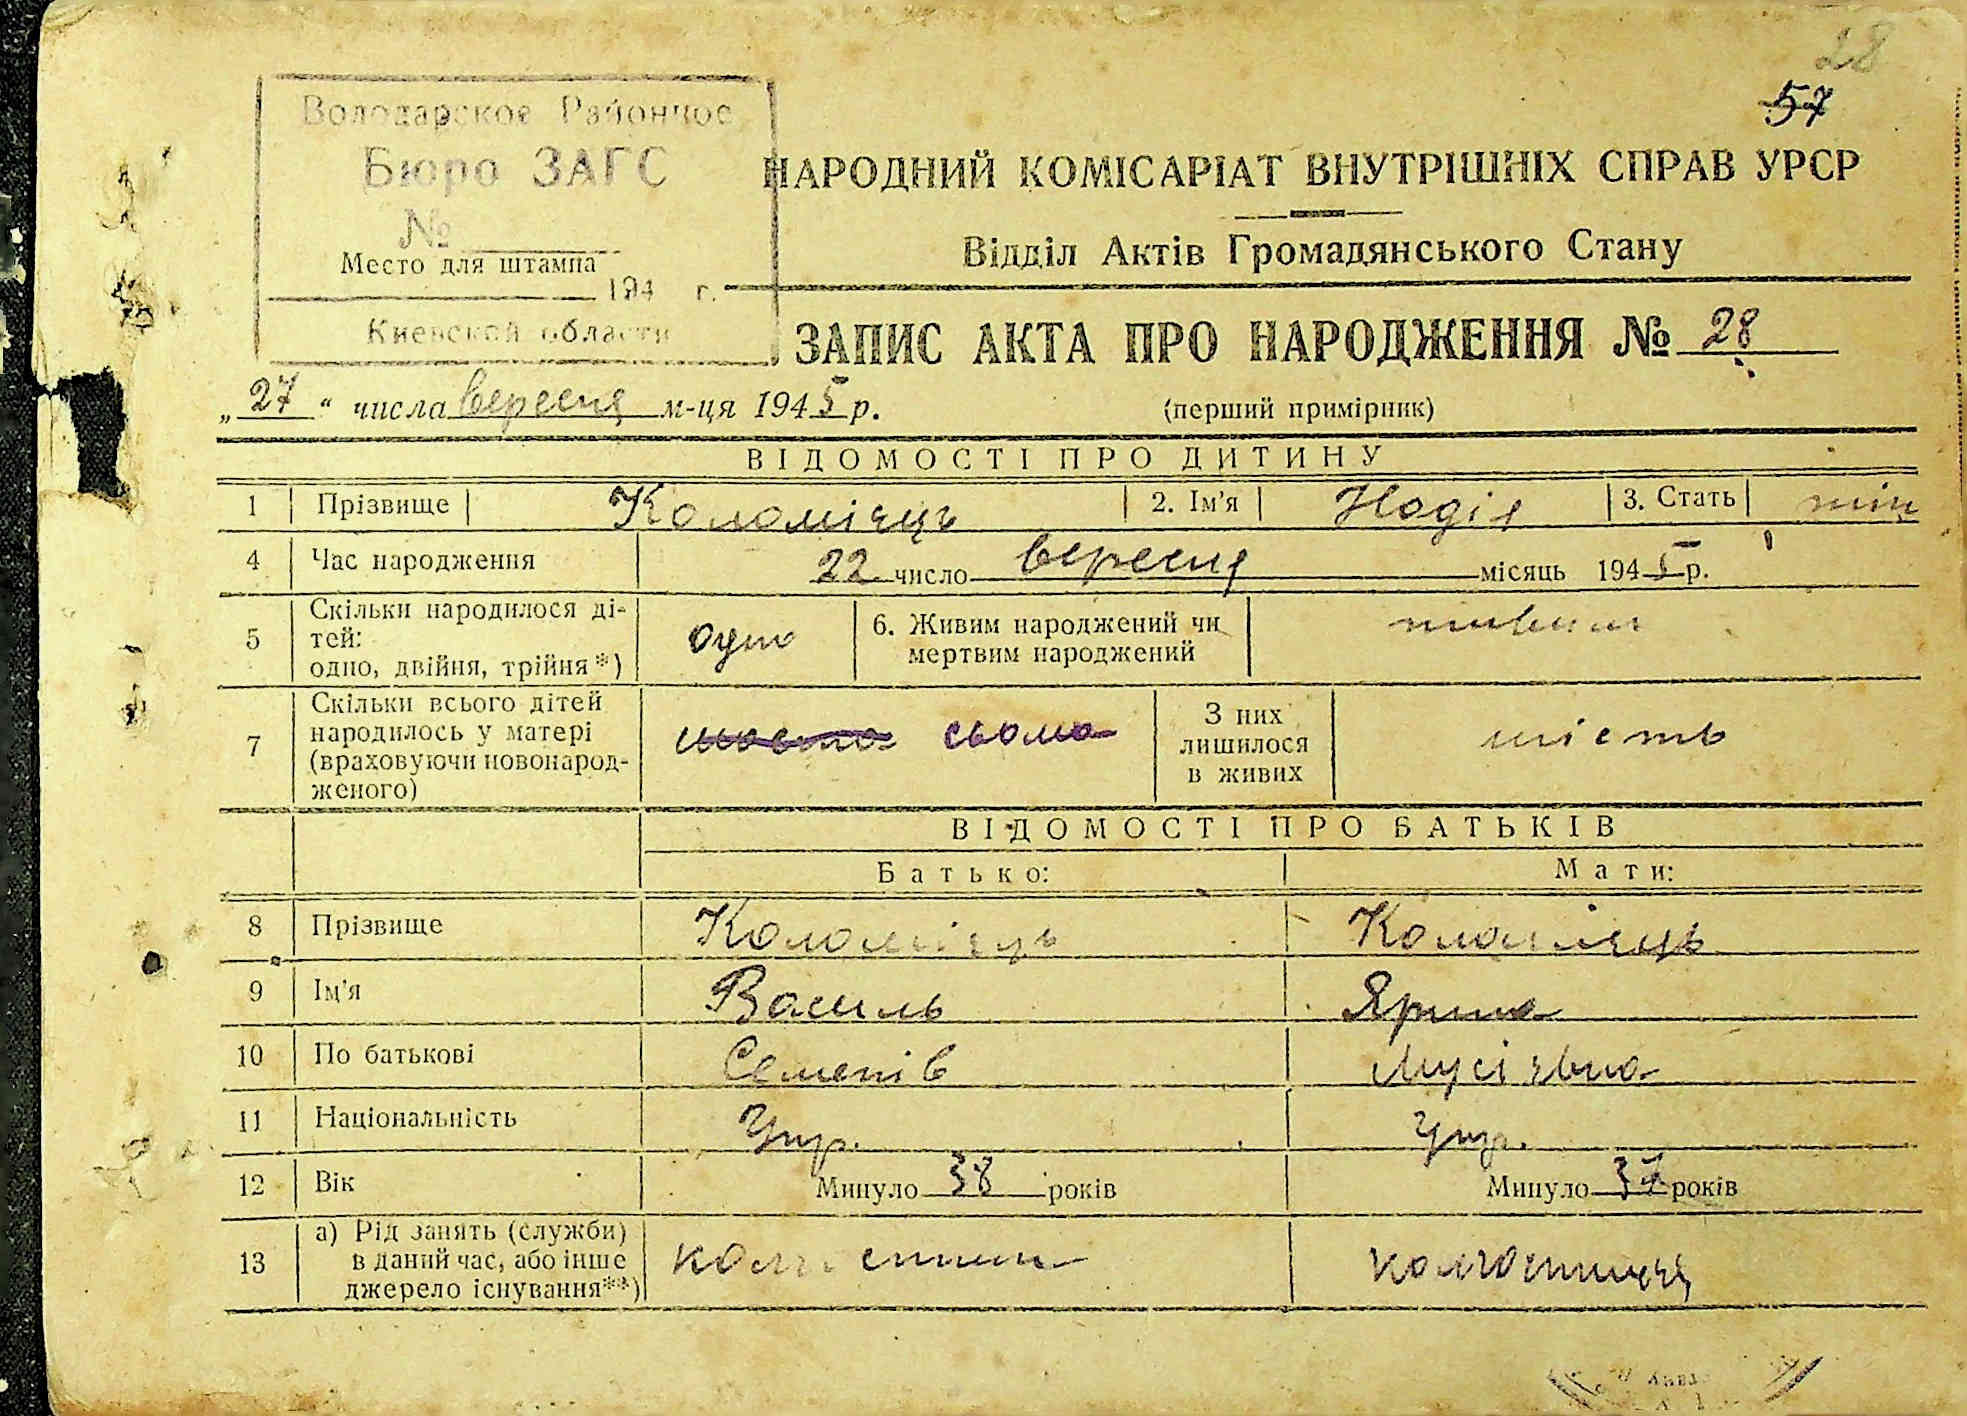 28
57
Володарское Районное
Бюро ЗАГС
№
Место для штампа
194 г.
Киевской области
НАРОДНИЙ КОМІСАРІАТ ВНУТРІШНІХ СПРАВ УРСР
Відділ Актів Громадянського Стану
ЗАПИС АКТА ПРО НАРОДЖЕННЯ № 28
„27“ числа вересня м-ця 1945 р.
(перший примірник)
ВІДОМОСТІ ПРО ДИТИНУ
1 Прізвище Коломієць 2. Ім'я Надія 3. Стать жін
4 Час народження 22 число вересня місяць 1945 р.
5 Скільки народилося ді-
тей:
одно, двійня, трійня*) одно 6. Живим народжений чи
мертвим народжений живим
7 Скільки всього дітей
народилось у матері
(враховуючи новонарод-
женого) шоста сьома З них
лишилося
в живих шість
ВІДОМОСТІ ПРО БАТЬКІВ
Батько: Мати:
8 Прізвище Коломієць Коломієць
9 Ім'я Василь Ярина
10 По батькові Семенів Мусієвна
11 Національність Укр. Укр.
12 Вік Минуло 38 років Минуло 37 років
13 а) Рід занять (служби)
в даний час, або інше
джерело існування**) колгоспник колгоспниця